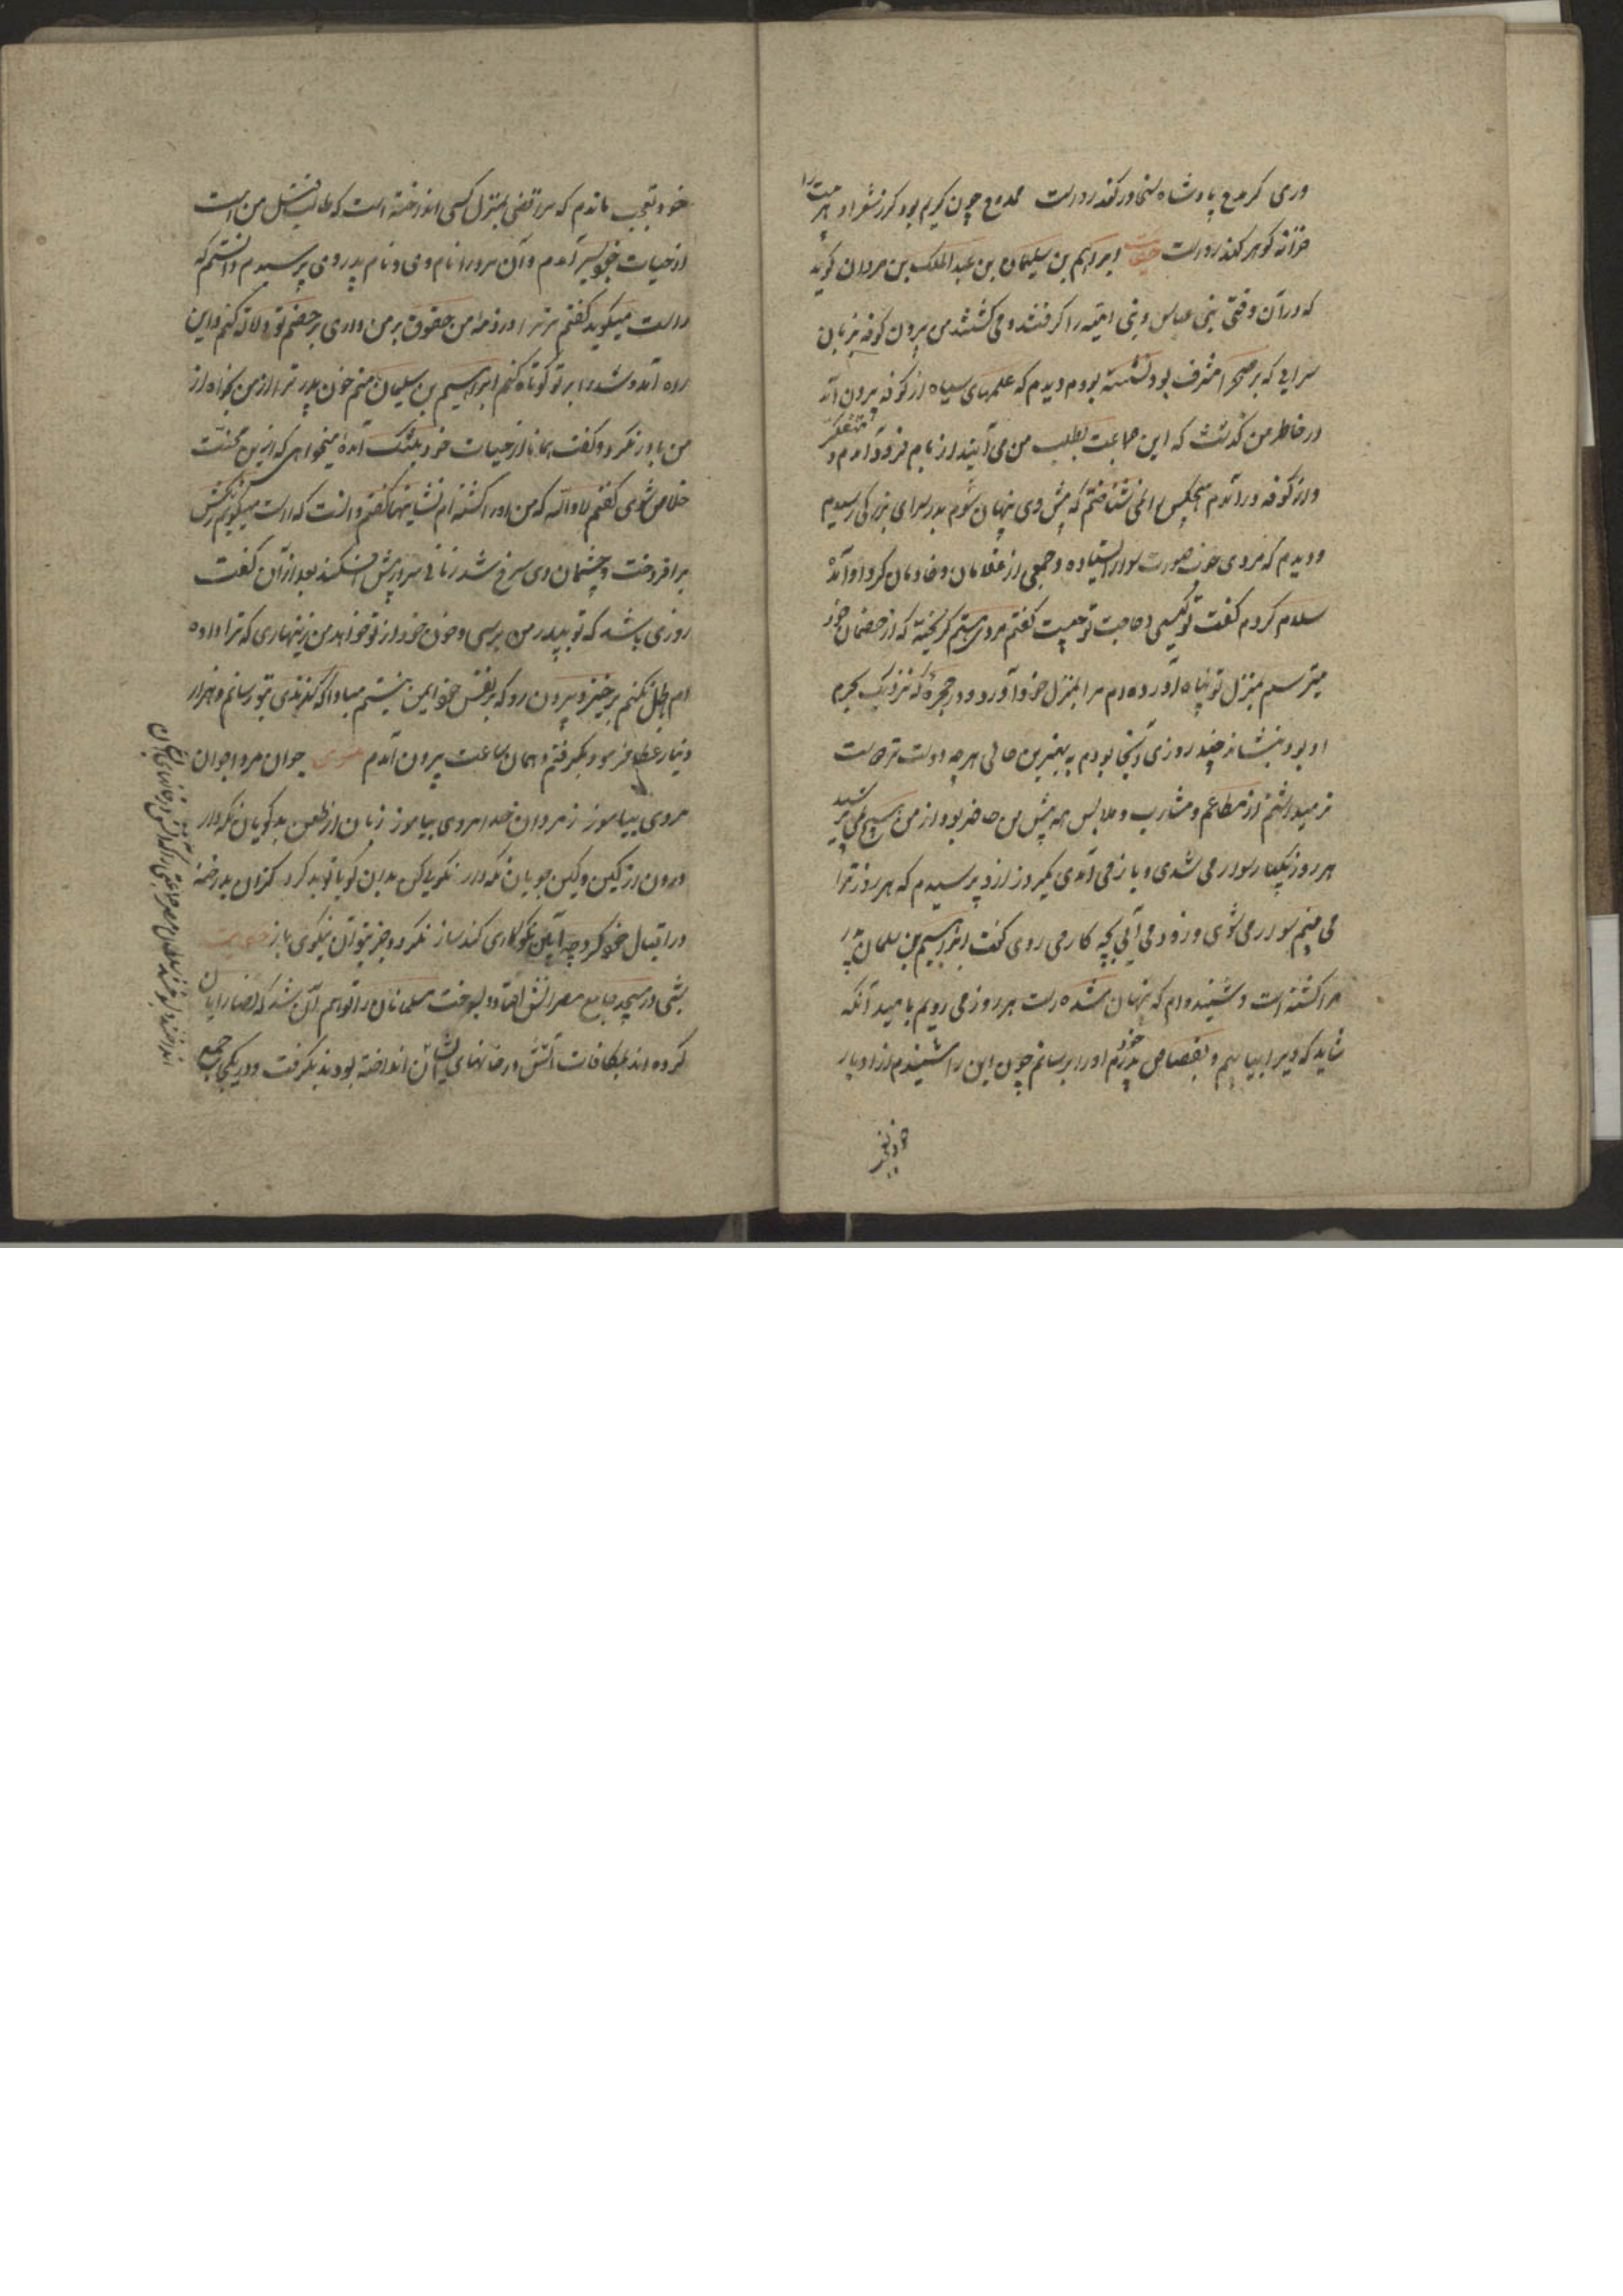 وری کر مدح پادشاه سخاور کند رواست ممدوح چون کریم بود کر ز شعر او هر بیت را
خزانه کوهر کند رواست حکایت ابراهیم بن سلیمان بن عبدالملک بن مروان کوید
که در آن وقتی بنی عباس بنی امیه را کرفتند و می کشتند من بیرون کوفه بر بام
سرایی که بر صحرا مشرف بود نشسته بودم دیدم که علمهای سیاه از کوفه بیرون آمد
در خاطر من کذشت که این جماعت بطلب من می آیند از بام فرود آمدم و متنکر
وار کوفه در آمدم هیچکس را نمی شناختم که پیش وی پنهان شوم بدر سرای بزرکی رسیدم
و دیدم که مردی خوب صورت سوار ایستاده و جمعی از غلامان و خادمان کرد او آمده
سلام کردم کفت تو کیستی و حاجت تو چیست کفتم مردی ستم کریخته که از خصمان خود
میترسم بمنزل تو پناه آورده ام مرا بمنزل خود آورد و در حجره که نزدیک بحرم
او بود بنشاند چند روزی آنجا بودم به بهترین حالی هر چه دوست تر
میداشتم از مطاعم و مشارب و ملابس همه پیش من حاضر بود و از من هیچ نمی پرسید
هر روز یکبار سوار می شدی و باز می آمدی یکروز از و پرسیدم که هر روز ترا
می بینم سوار می شوی و زود می آیی بچه کار می روی کفت ابراهیم بن سلیمان پدر
مرا کشته است و شنیده ام که پنهان شده است هر روز می رویم بامید آنکه
شاید که ویرا بیابم و بقصاص پدر خودم اورا برسانم چون این را شنیدم از ادبار
خود بتعجب
خود بتعجب ماندم که مرا قضی بمنزل کسی انداخته است که طالب قتل من است
از حیات خود سیر آمدم و آن مرد را نام وی و نام پدر وی پرسیدم دانستم که
راست میکوید کفتم مر ترا در ذمه من حقوق بر من داری بر خصم تو دلالت کنم و این
راه آمد و شد را بر تو کوتاه کنم ابراهیم بن سلیمان منم خون پدر ترا از من بخواه از
من باور نکرد و کفت همانا از حیات خود بتنک آمده میخواهی که ازین محنت
خلاص شوی کفتم لا والله که من او را کشته ام نشانیها کفتم دانست که راست میکویم رنکش
برافروخت و چشمان وی سرخ شد زمانی سر در پیش افکند بعد از آن کفت
روزی باشد که تو بپدر من برسی و خون خود از تو خواهد من زینهاری که ترا داده
ام باطل نکنم برخیز و بیرون رو که بر نفس خود ایمن نیستم مبادا که کزندی بتو رسانم و هزار
دینار عطا فرمود بکرفتم و همان ساعت بیرون آمدم مثنوی جوان مردا جوان
مردی بیاموز ز مردان خدا مردی بیاموز زبان از طعن بد کویان نکه دار
درون از کین و کین جویان نکه دار نکویی کن بدان کو با تو بد کرد کزان بد رخنه
در اقبال خود کرد چو آیین نکو کاری کند ساز نکردد جز بتو آن نیکوی باز حکایت
شبی در مسجد جامع مصر آتش افتاد و بسوخت مسلمانان را توهم آن شد که نصارا آن
کرده اند بمکافات آتش در خانهای ایشان انداخته بودند بکرفت و در یکی جمع